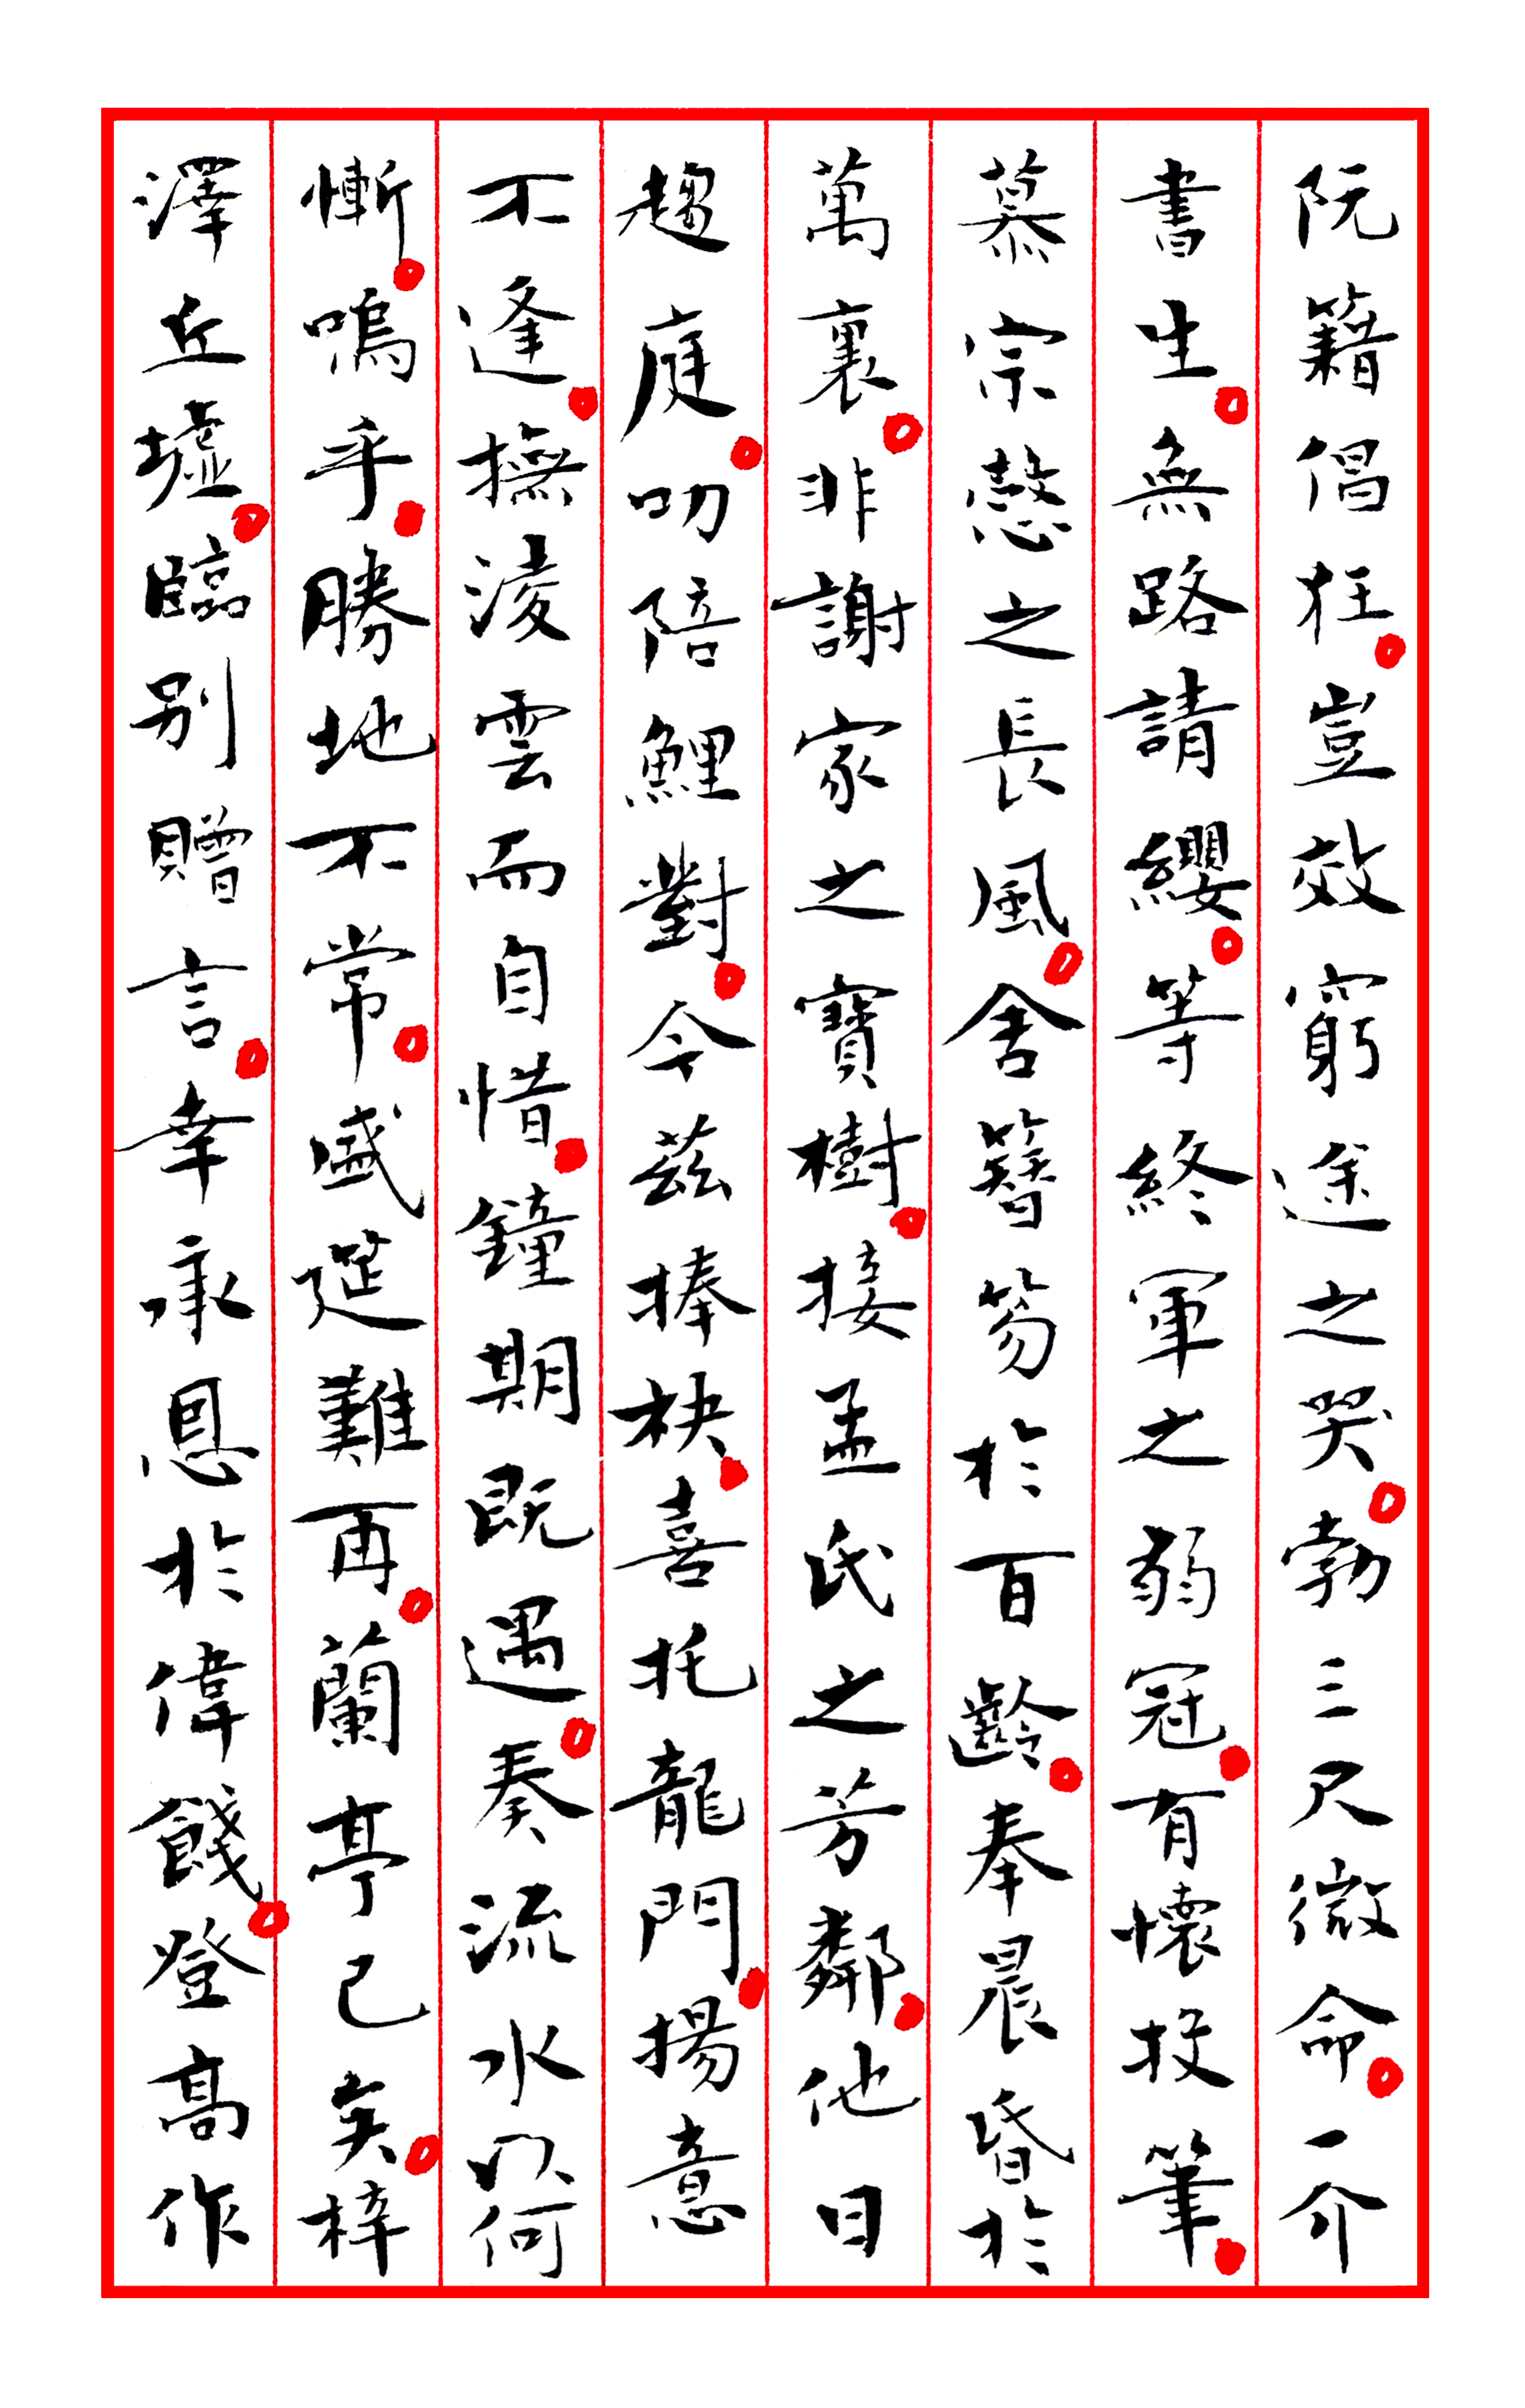 阮籍倡狂。豈效窮途之哭。勃三尺微命。一介
書生。無路請纓。等終軍之弱冠。有懷投筆。
慕宗愨之長風。舍簪笏於百齡。奉晨昏於
萬裏。非謝家之寶樹。接孟氏之芳鄰。他日
趨庭。叨陪鯉對。今茲捧袂。喜托龍門。揚意
不逢。撫淩雲而自惜。鐘期既遇。奏流水以何
慚。嗚乎。勝地不常。盛筵難再。蘭亭已矣。梓
澤丘墟。臨別贈言。幸承恩於偉餞。登高作